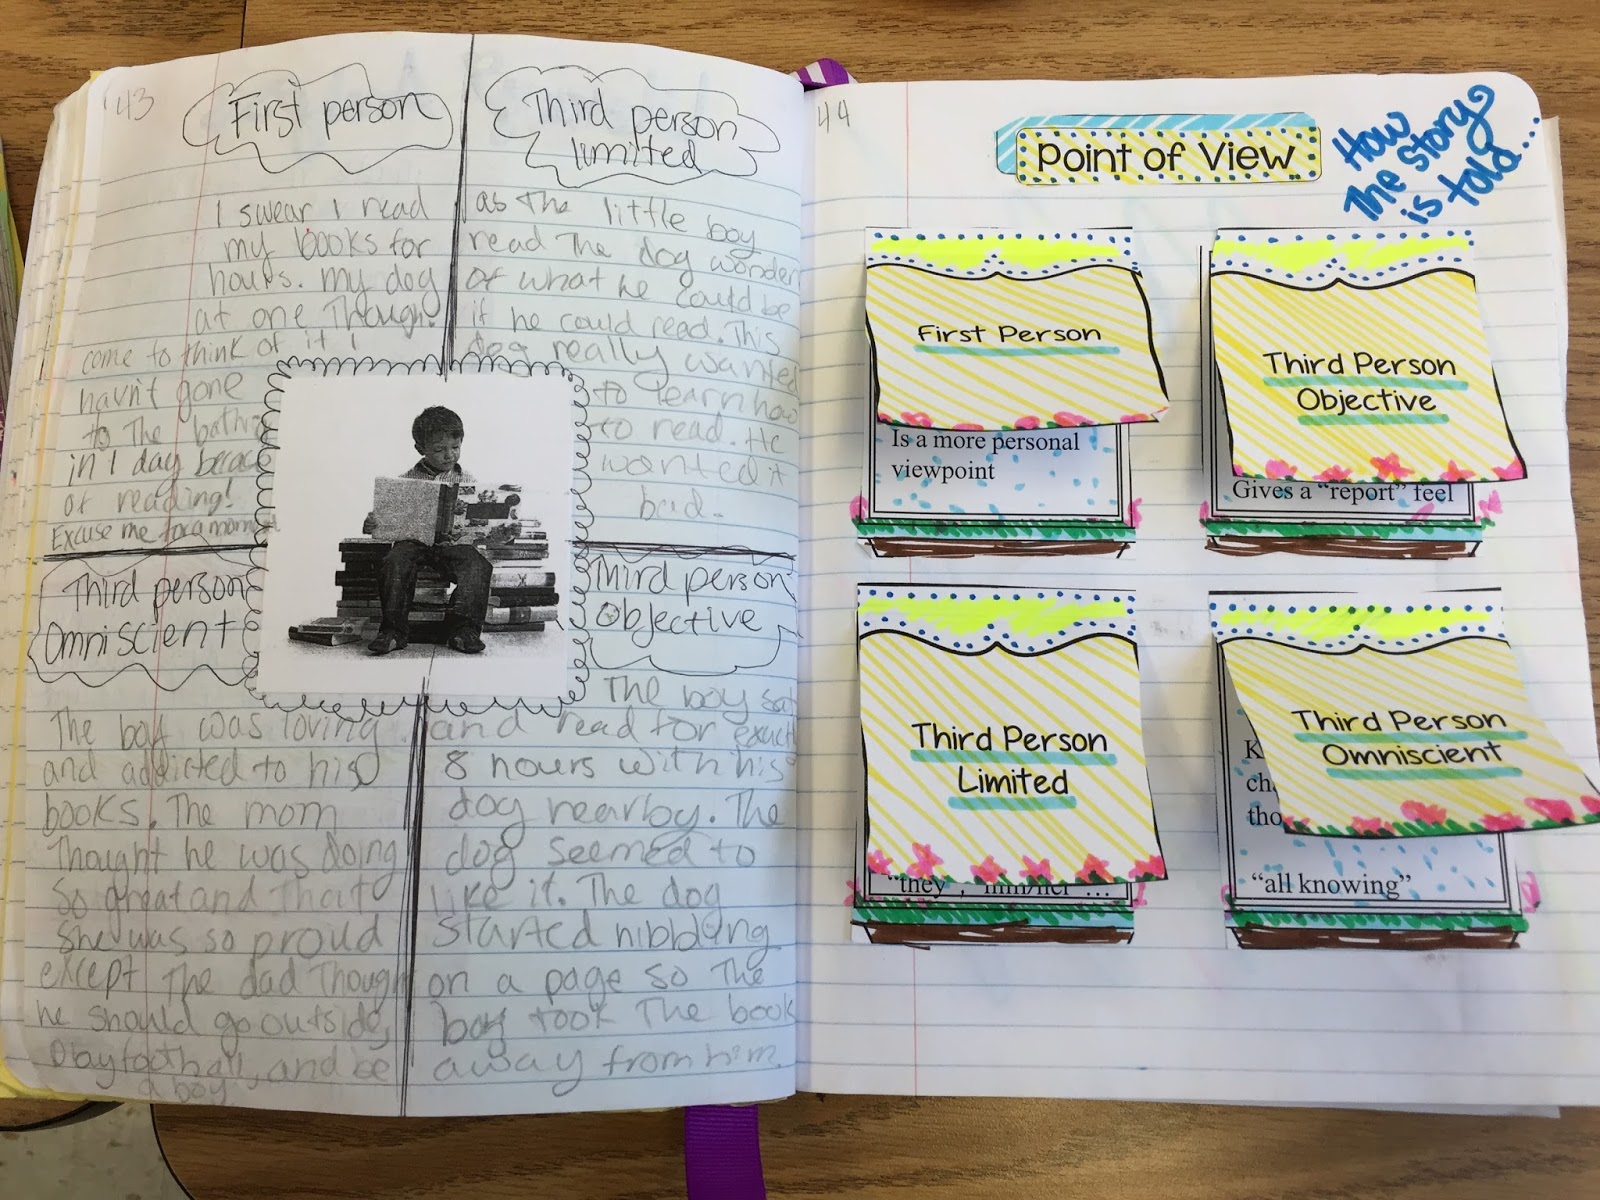 43
First person
I swear I read
my books for
hours. my dog
at one Though.
come to think of it I
havn't gone
to the
in 1 day
of reading!
Excuse me for a
Third person
limited
as the little boy
read the dog wonder
of what he could be
if he could read. This
dog really wanted
to learn how
to read. He
wanted it
bad.
Third person
Omniscient
The boy was loving
and addicted to his
books. The mom
Thought he was doing
so great and That
she was so proud
except The dad Though
he should go outside,
play football, and be
a boy
Third person
Objective
The boy sat
and read for
8 hours with his
dog nearby. The
dog seemed to
like it. The dog
started nibbling
on a page so The
boy took The book
away from him.
44
Point of View
How
The story
is told...
First Person
Is a more personal
viewpoint
Third Person
Objective
Gives a "report" feel
Third Person
Limited
"they",
Third Person
Omniscient
"all knowing"